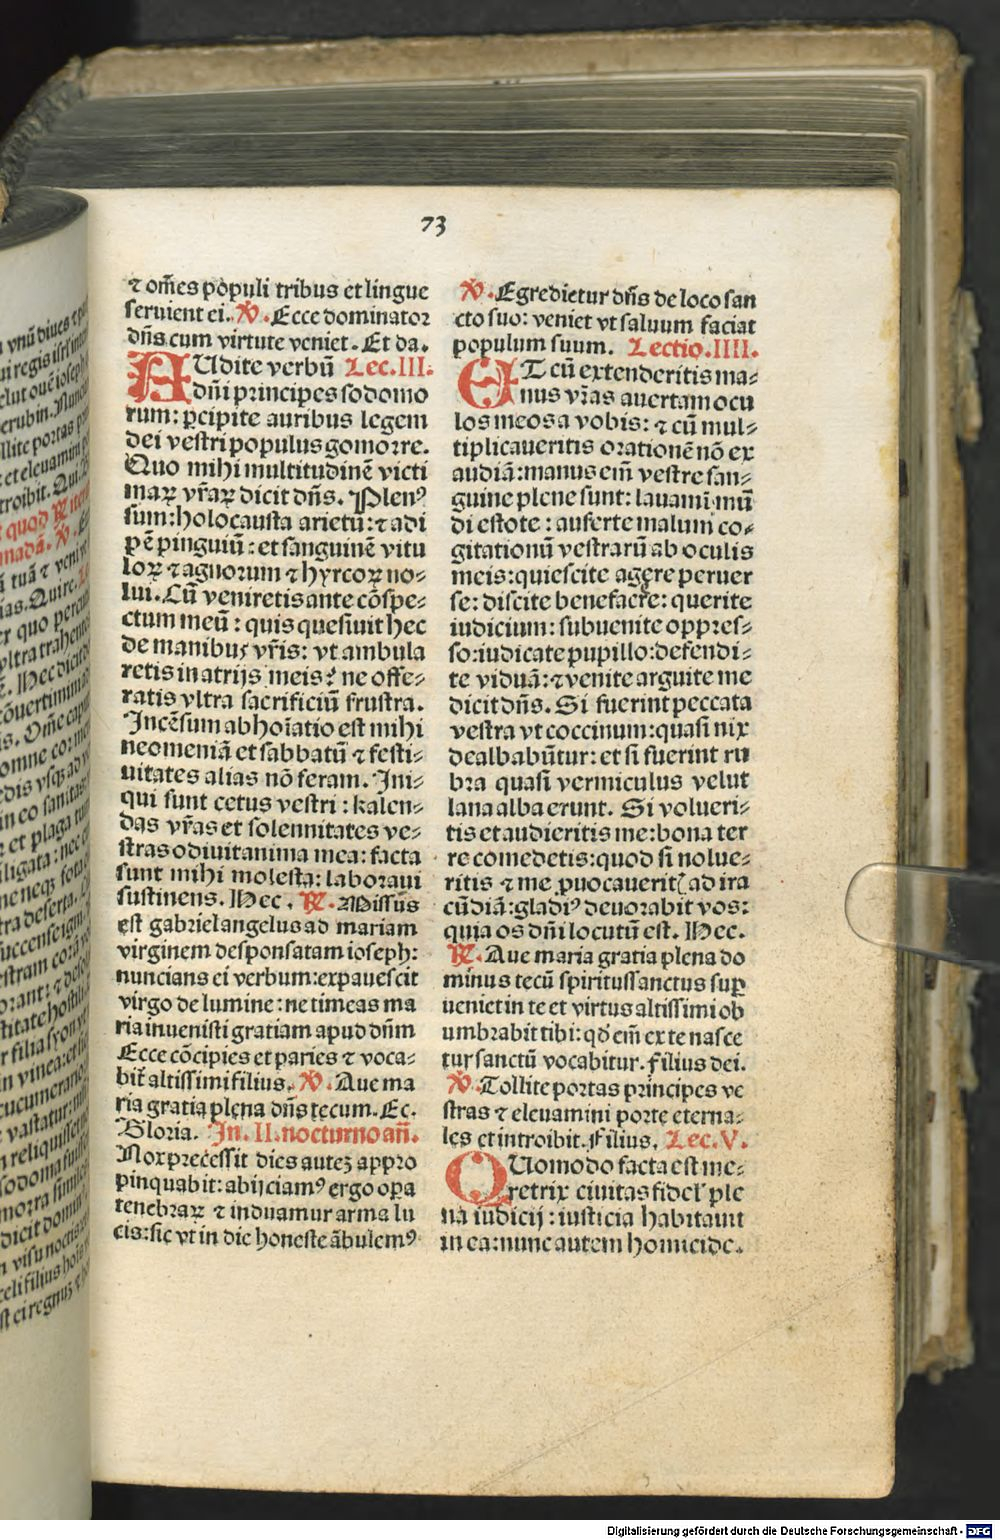 73
⁊ om̄es populi tribus et lingue
seruient ei. ℣. Ecce dominator
dn̄s cum virtute veniet. Et da.
AUdite verbū Lec. III.
dn̄i principes sodomo
rum: ꝑcipite auribus legem
dei vestri populus gomorre.
Quo mihi multitudinē victi
maꝝ vr̄aꝝ dicit dn̄s. Plenꝰ
sum: holocausta arietū: ⁊ adi
pē pinguiū: et sanguinē vitu
loꝝ ⁊ agnorum ⁊ hyrcoꝝ no⸗
lui. Cū veniretis ante cōspe⸗
ctum meū: quis quesiuit hec
de manibus vr̄is: vt ambula
retis in atrijs meis? ne offe⸗
ratis vltra sacrificiū frustra.
Incēsum abhoīatio est mihi
neomeniā et sabbatū ⁊ festi⸗
uitates alias nō feram. Ini⸗
qui sunt cetus vestri: kalen⸗
das vr̄as et solennitates ve⸗
stras odiuit anima mea: facta
sunt mihi molesta: laboraui
sustinens. Hec. ℟. Missus
est gabriel angelus ad mariam
virginem desponsatam ioseph:
nuncians ei verbum: expauescit
virgo de lumine: ne timeas ma
ria inuenisti gratiam apud dn̄m
Ecce cōcipies et paries ⁊ voca⸗
bit̄ altissimi filius. ℣. Aue ma
ria gratia plena dn̄s tecum. Ec.
Gloria. In. II. nocturno an̄.
Nox precessit dies auteꝫ appro
pinquabit: abijciamꝰ ergo opa
tenebraꝝ ⁊ induamur arma lu
cis: sic vt in die honeste ābulemꝰ
℣. Egredietur dn̄s de loco san
cto suo: veniet vt saluum faciat
populum suum. Lectio. IIII.
ET cū extenderitis ma⸗
nus vr̄as auertam ocu
los meos a vobis: ⁊ cū mul⸗
tiplicaueritis orationē nō ex
audiā: manus em̄ vestre san⸗
guine plene sunt: lauamī: mū
di estote: auferte malum co⸗
gitationū vestrarū ab oculis
meis: quiescite agere peruer
se: discite benefacere: querite
iudicium: subuenite oppres⸗
so: iudicate pupillo: defendi⸗
te viduā: ⁊ venite arguite me
dicit dn̄s. Si fuerint peccata
vestra vt coccinum: quasi nix
dealbabūtur: et si fuerint ru
bra quasi vermiculus velut
lana alba erunt. Si volueri⸗
tis et audieritis me: bona ter
re comedetis: quod si nolue⸗
ritis ⁊ me ꝓuocaueritꝭ ad ira
cūdiā: gladiꝰ deuorabit vos:
quia os dn̄i locutū est. Hec.
℟. Aue maria gratia plena do
minus tecū spiritus sanctus suꝑ
ueniet in te et virtus altissimi ob
umbrabit tibi: qd̄ em̄ ex te nasce
tur sanctū vocabitur. filius dei.
℣. Tollite portas principes ve
stras ⁊ eleuamini porte eterna⸗
les et introibit. Filius. Lec. V.
QUomodo facta est me⸗
retrix ciuitas fidel' ple
na iudicij: iusticia habitauit
in ea: nunc autem homicide.
Digitalisierung gefördert durch die Deutsche Forschungsgemeinschaft - DFG